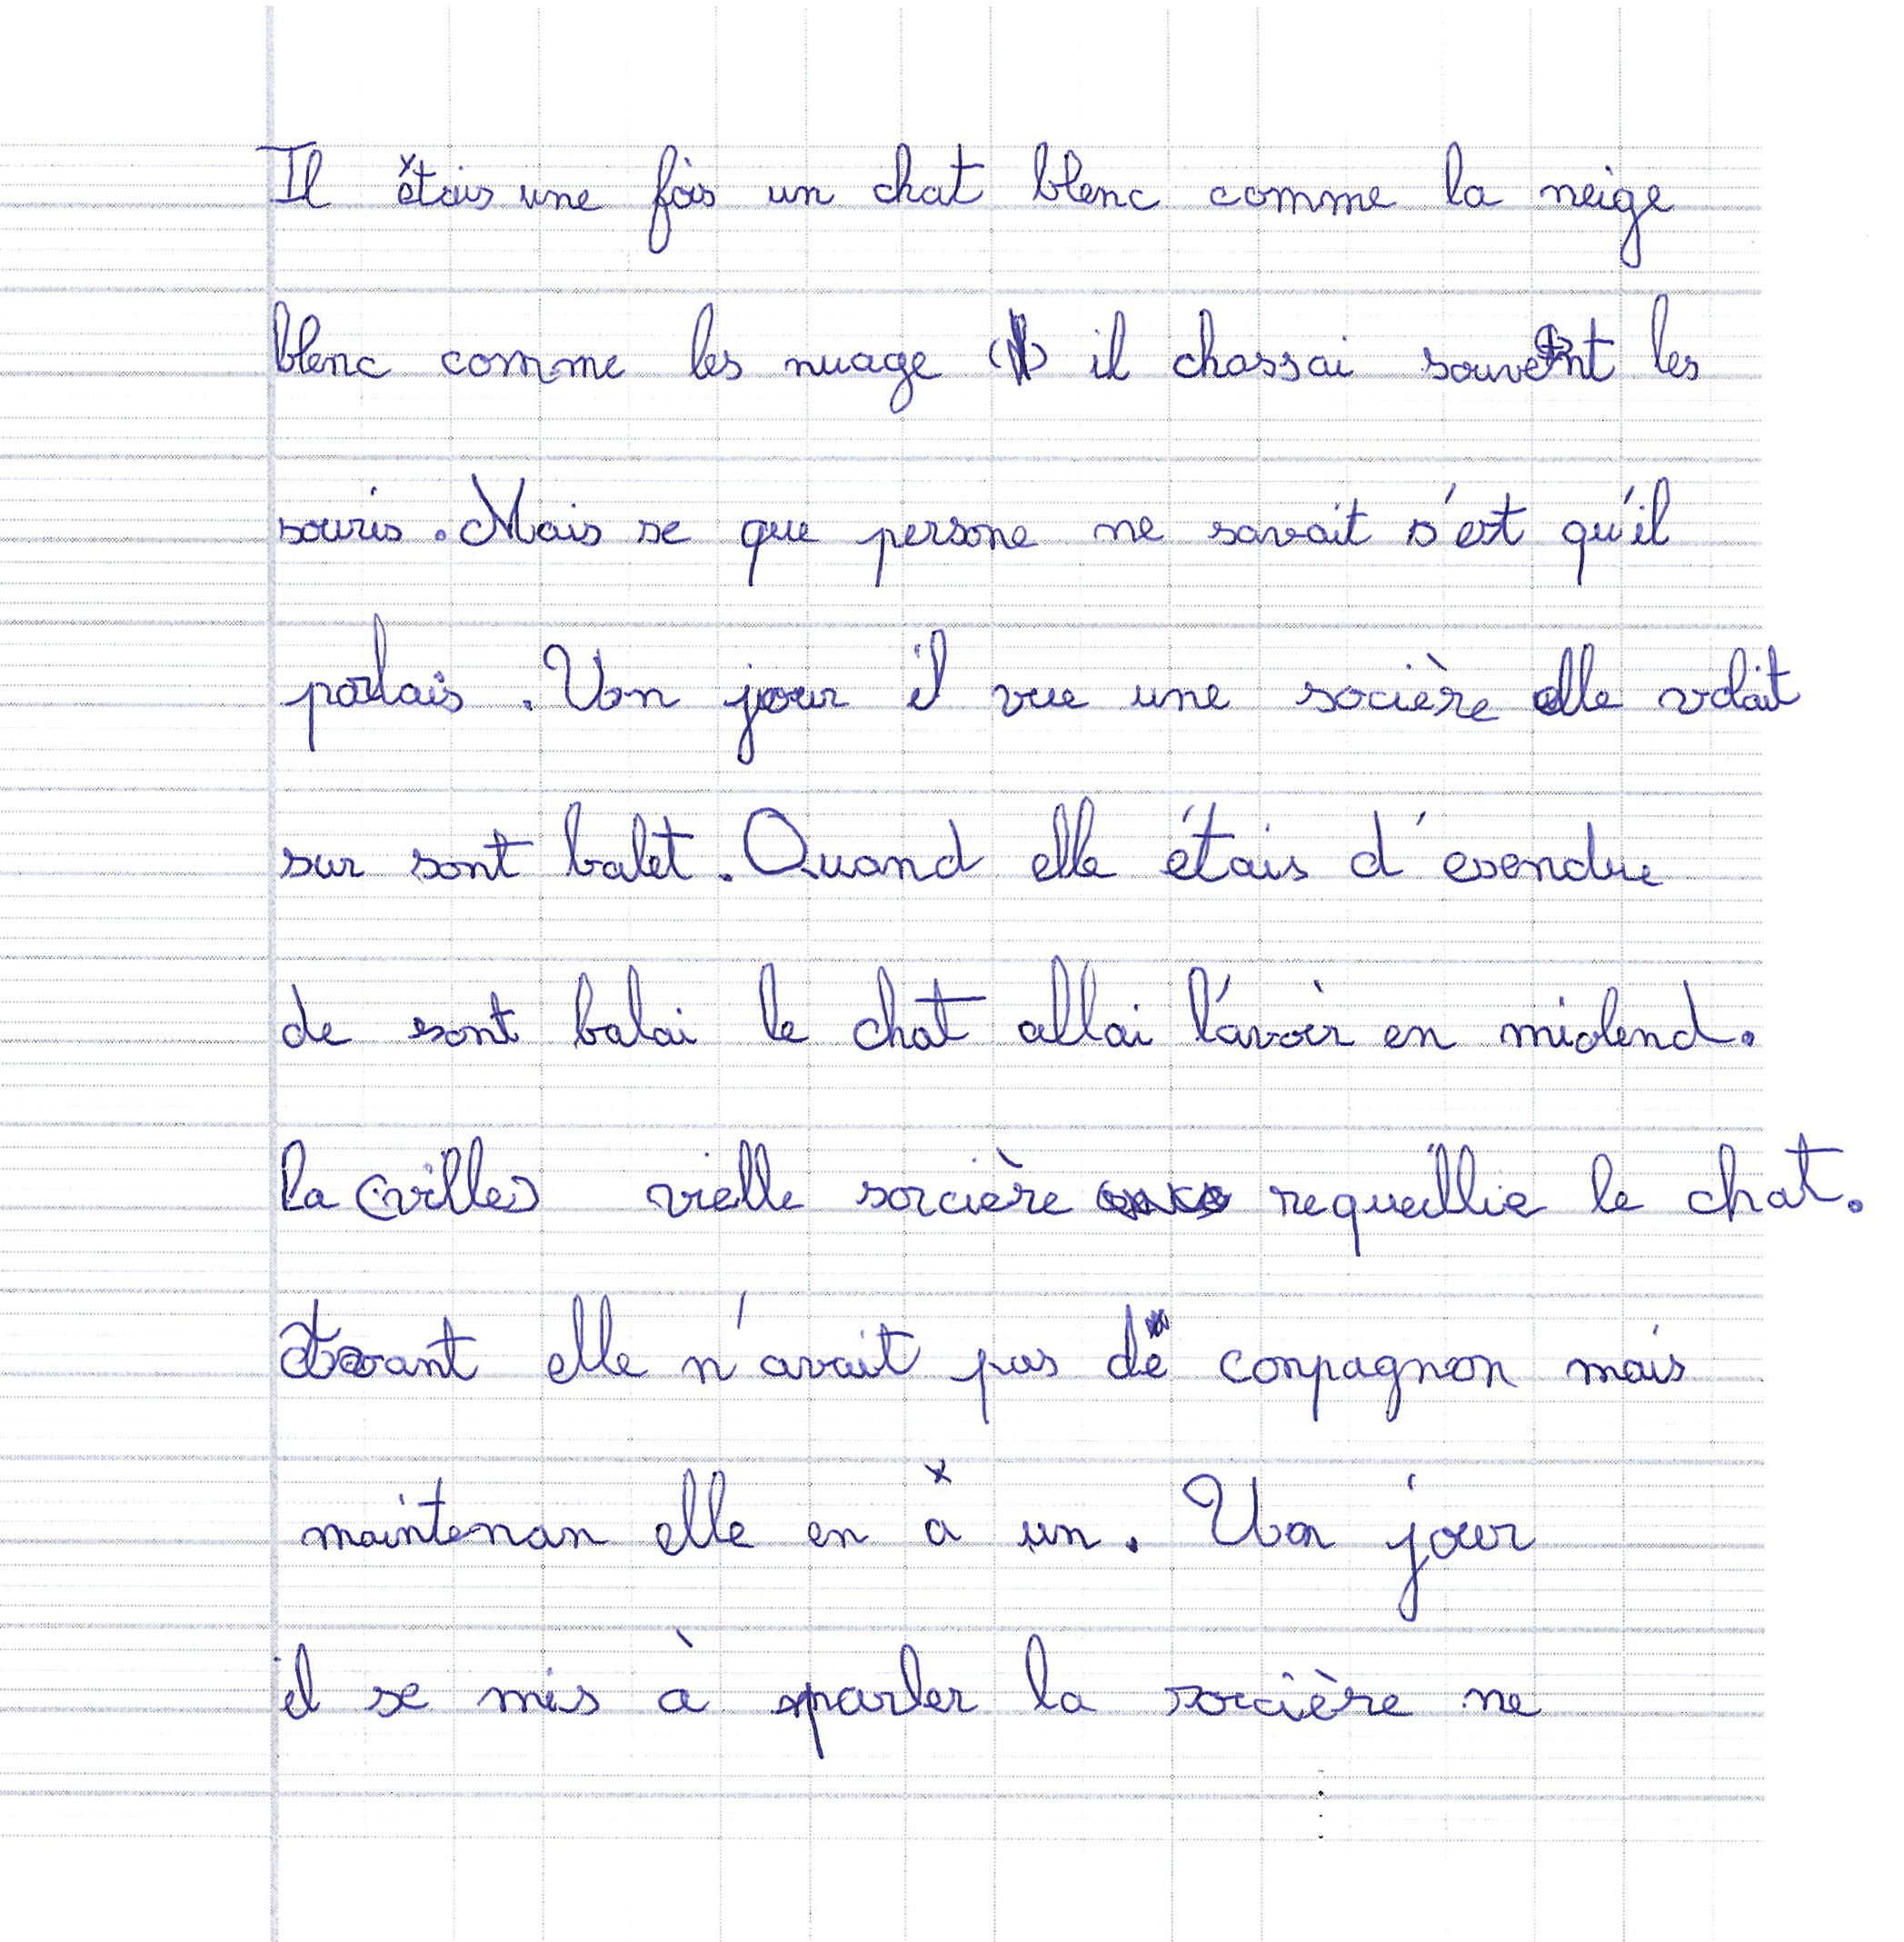 Il étais une fois un chat blenc comme la neige
blenc comme les nuage il chassai souvent les
souris. Mais se que persone ne savait s'est qu'il
parlais. Un jour il vue une socière elle volait
sur sont balet. Quand elle étais d'esendue
de sont balai le chat allai l'avoir en miolend.
la (villes) vielle sorcière requeillie le chat.
avant elle n'avait pas de conpagnon mais
maintenan elle en a un. Un jour
il se mis à parler la sorcière ne